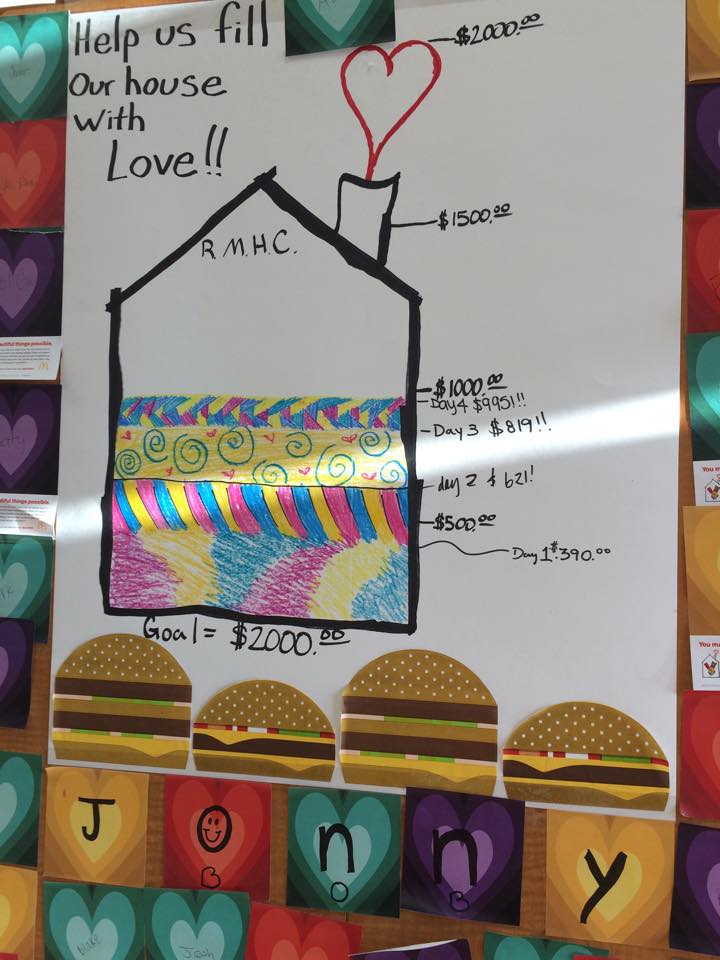 Help us fill
Our house
With
Love!!
$2000.00
$1500.00
R.M.H.C.
$1000.00
Day 4 $995!!!
Day 3 $819!!
day 2 $ 621!
$500.00
Day 1 $390.00
Goal = $2000.00
J o n n y
B O B
Blake
Josh
You ma
You ma